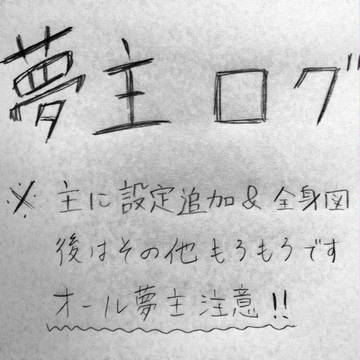 夢主ログ
※ 主に設定追加&全身図
後はその他もろもろです
オール夢主注意!!